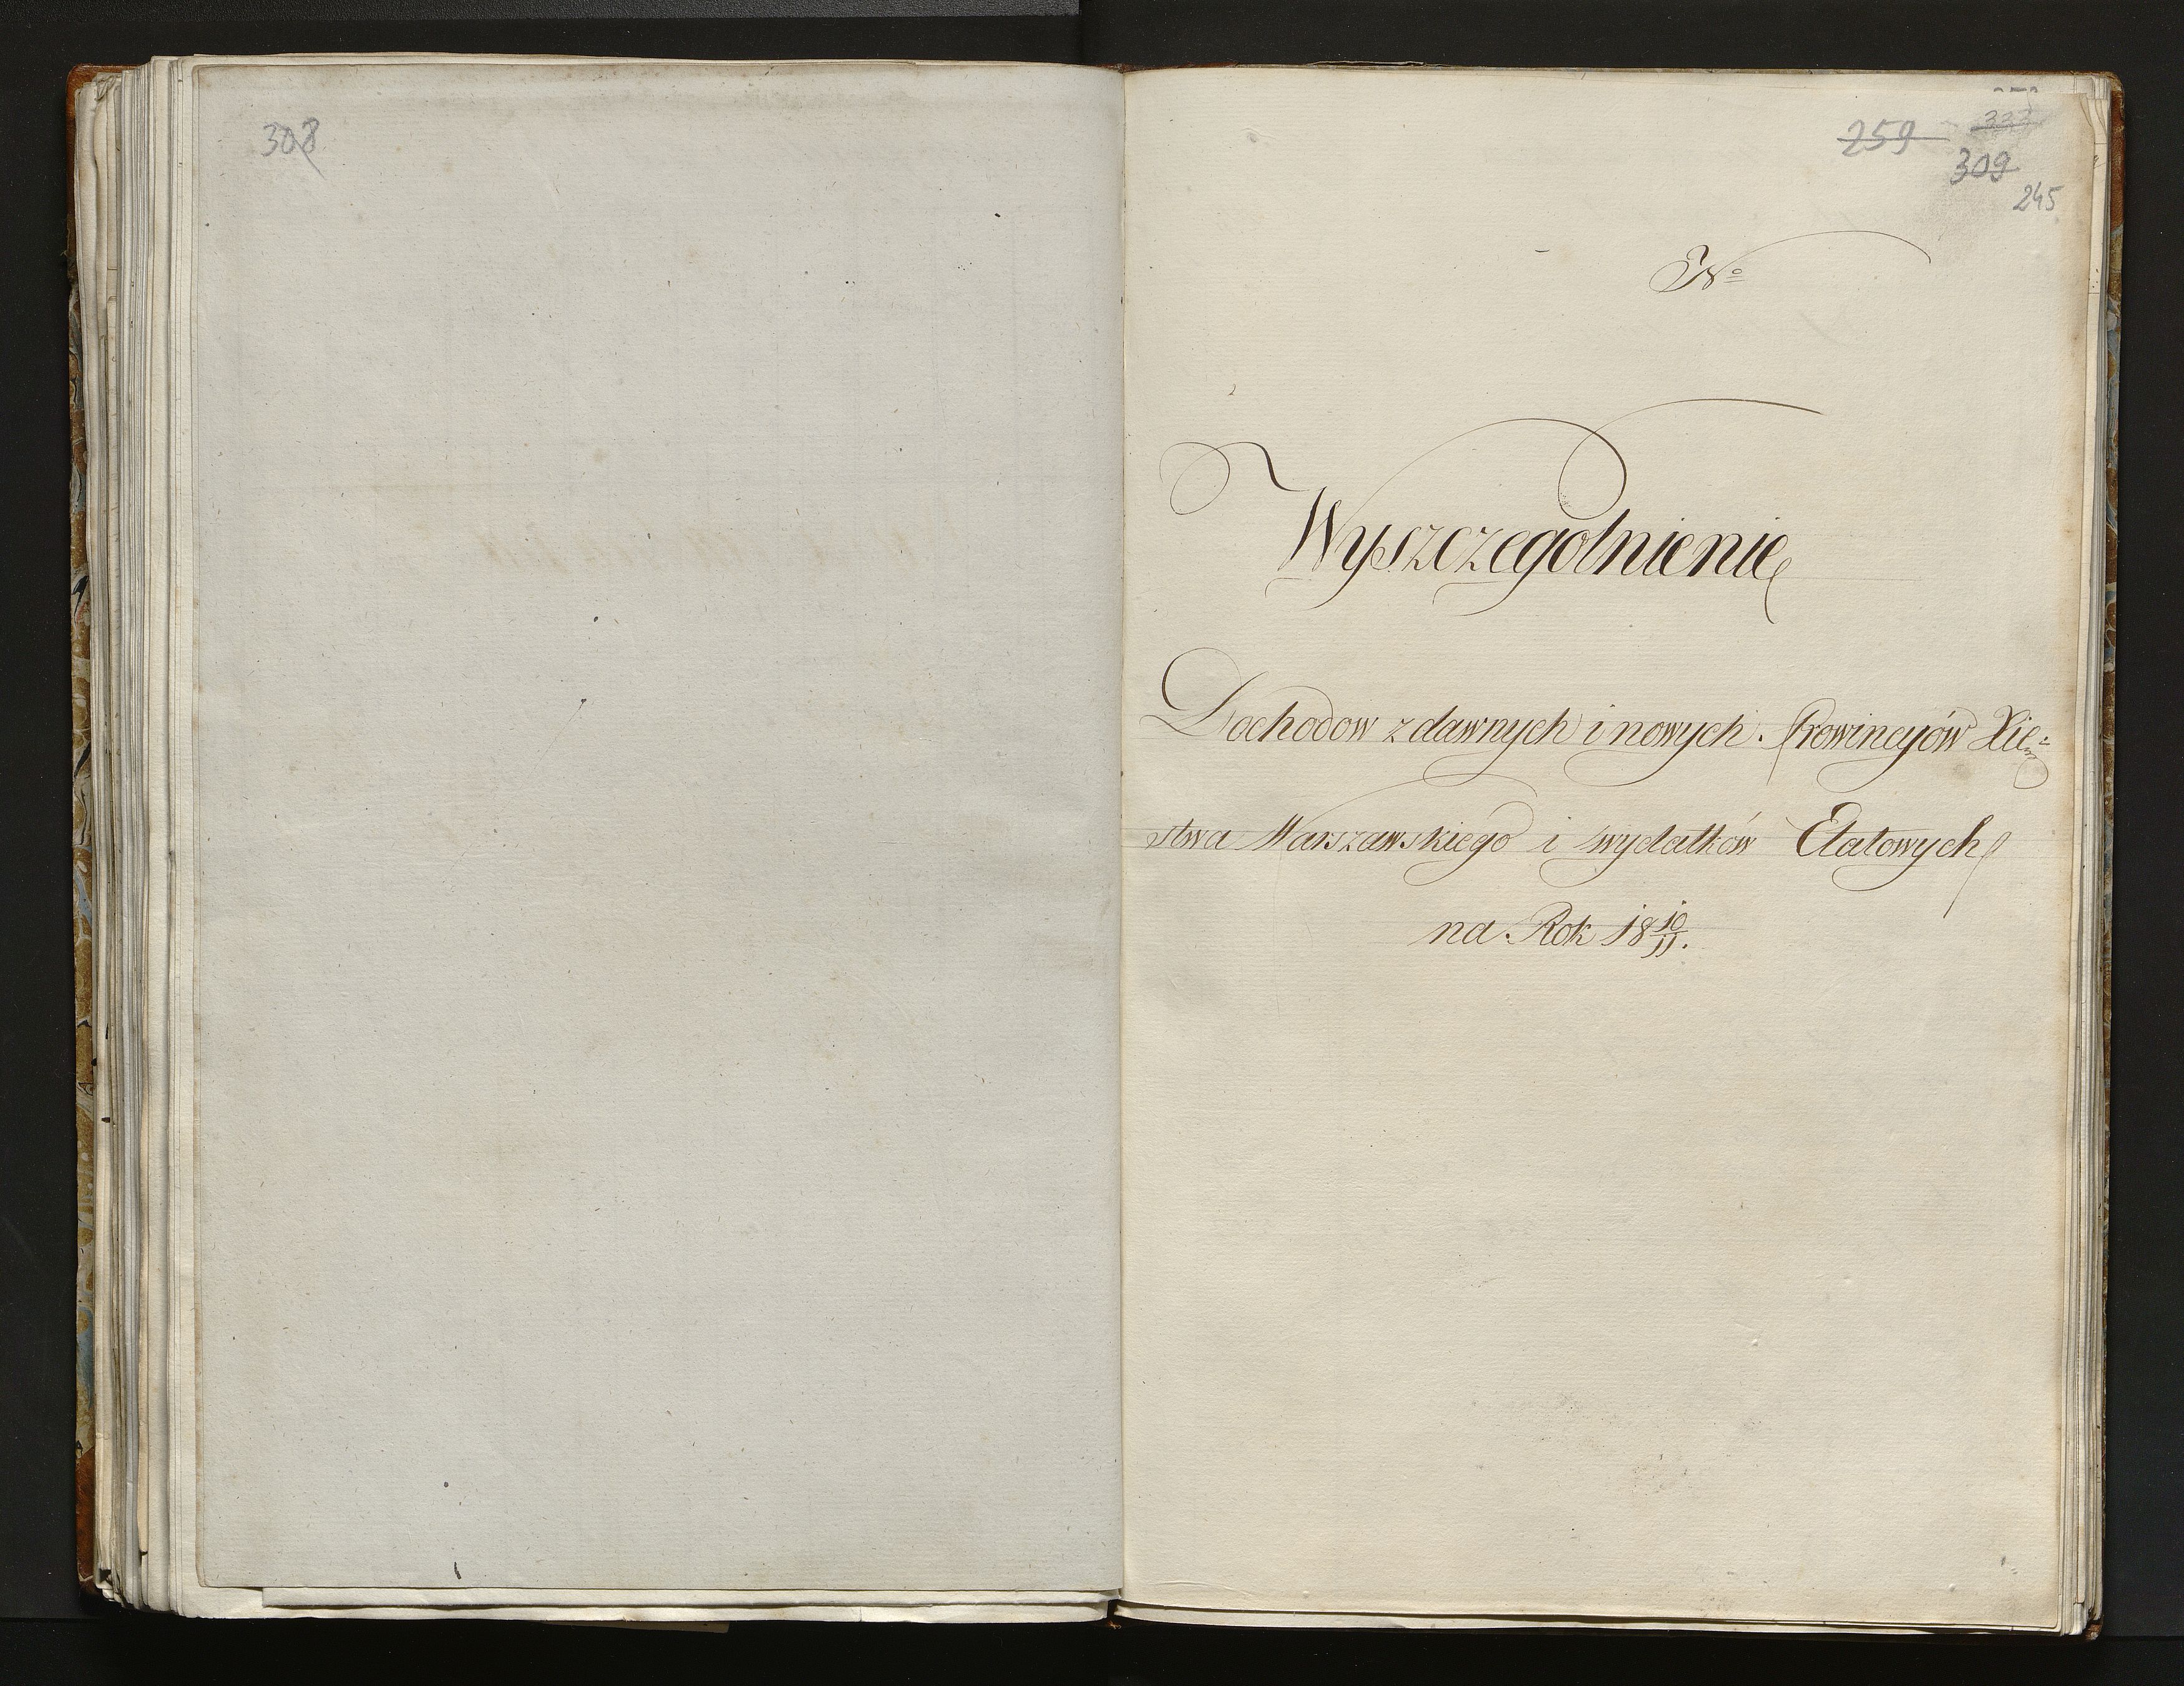 308
259
309
245
No
Wyszczegolnienie
Dochodow z dawnych i nowych Prowincyów Xię=
stwa Warszawskiego i wydatków Etatowych
na Rok 18 10/11.